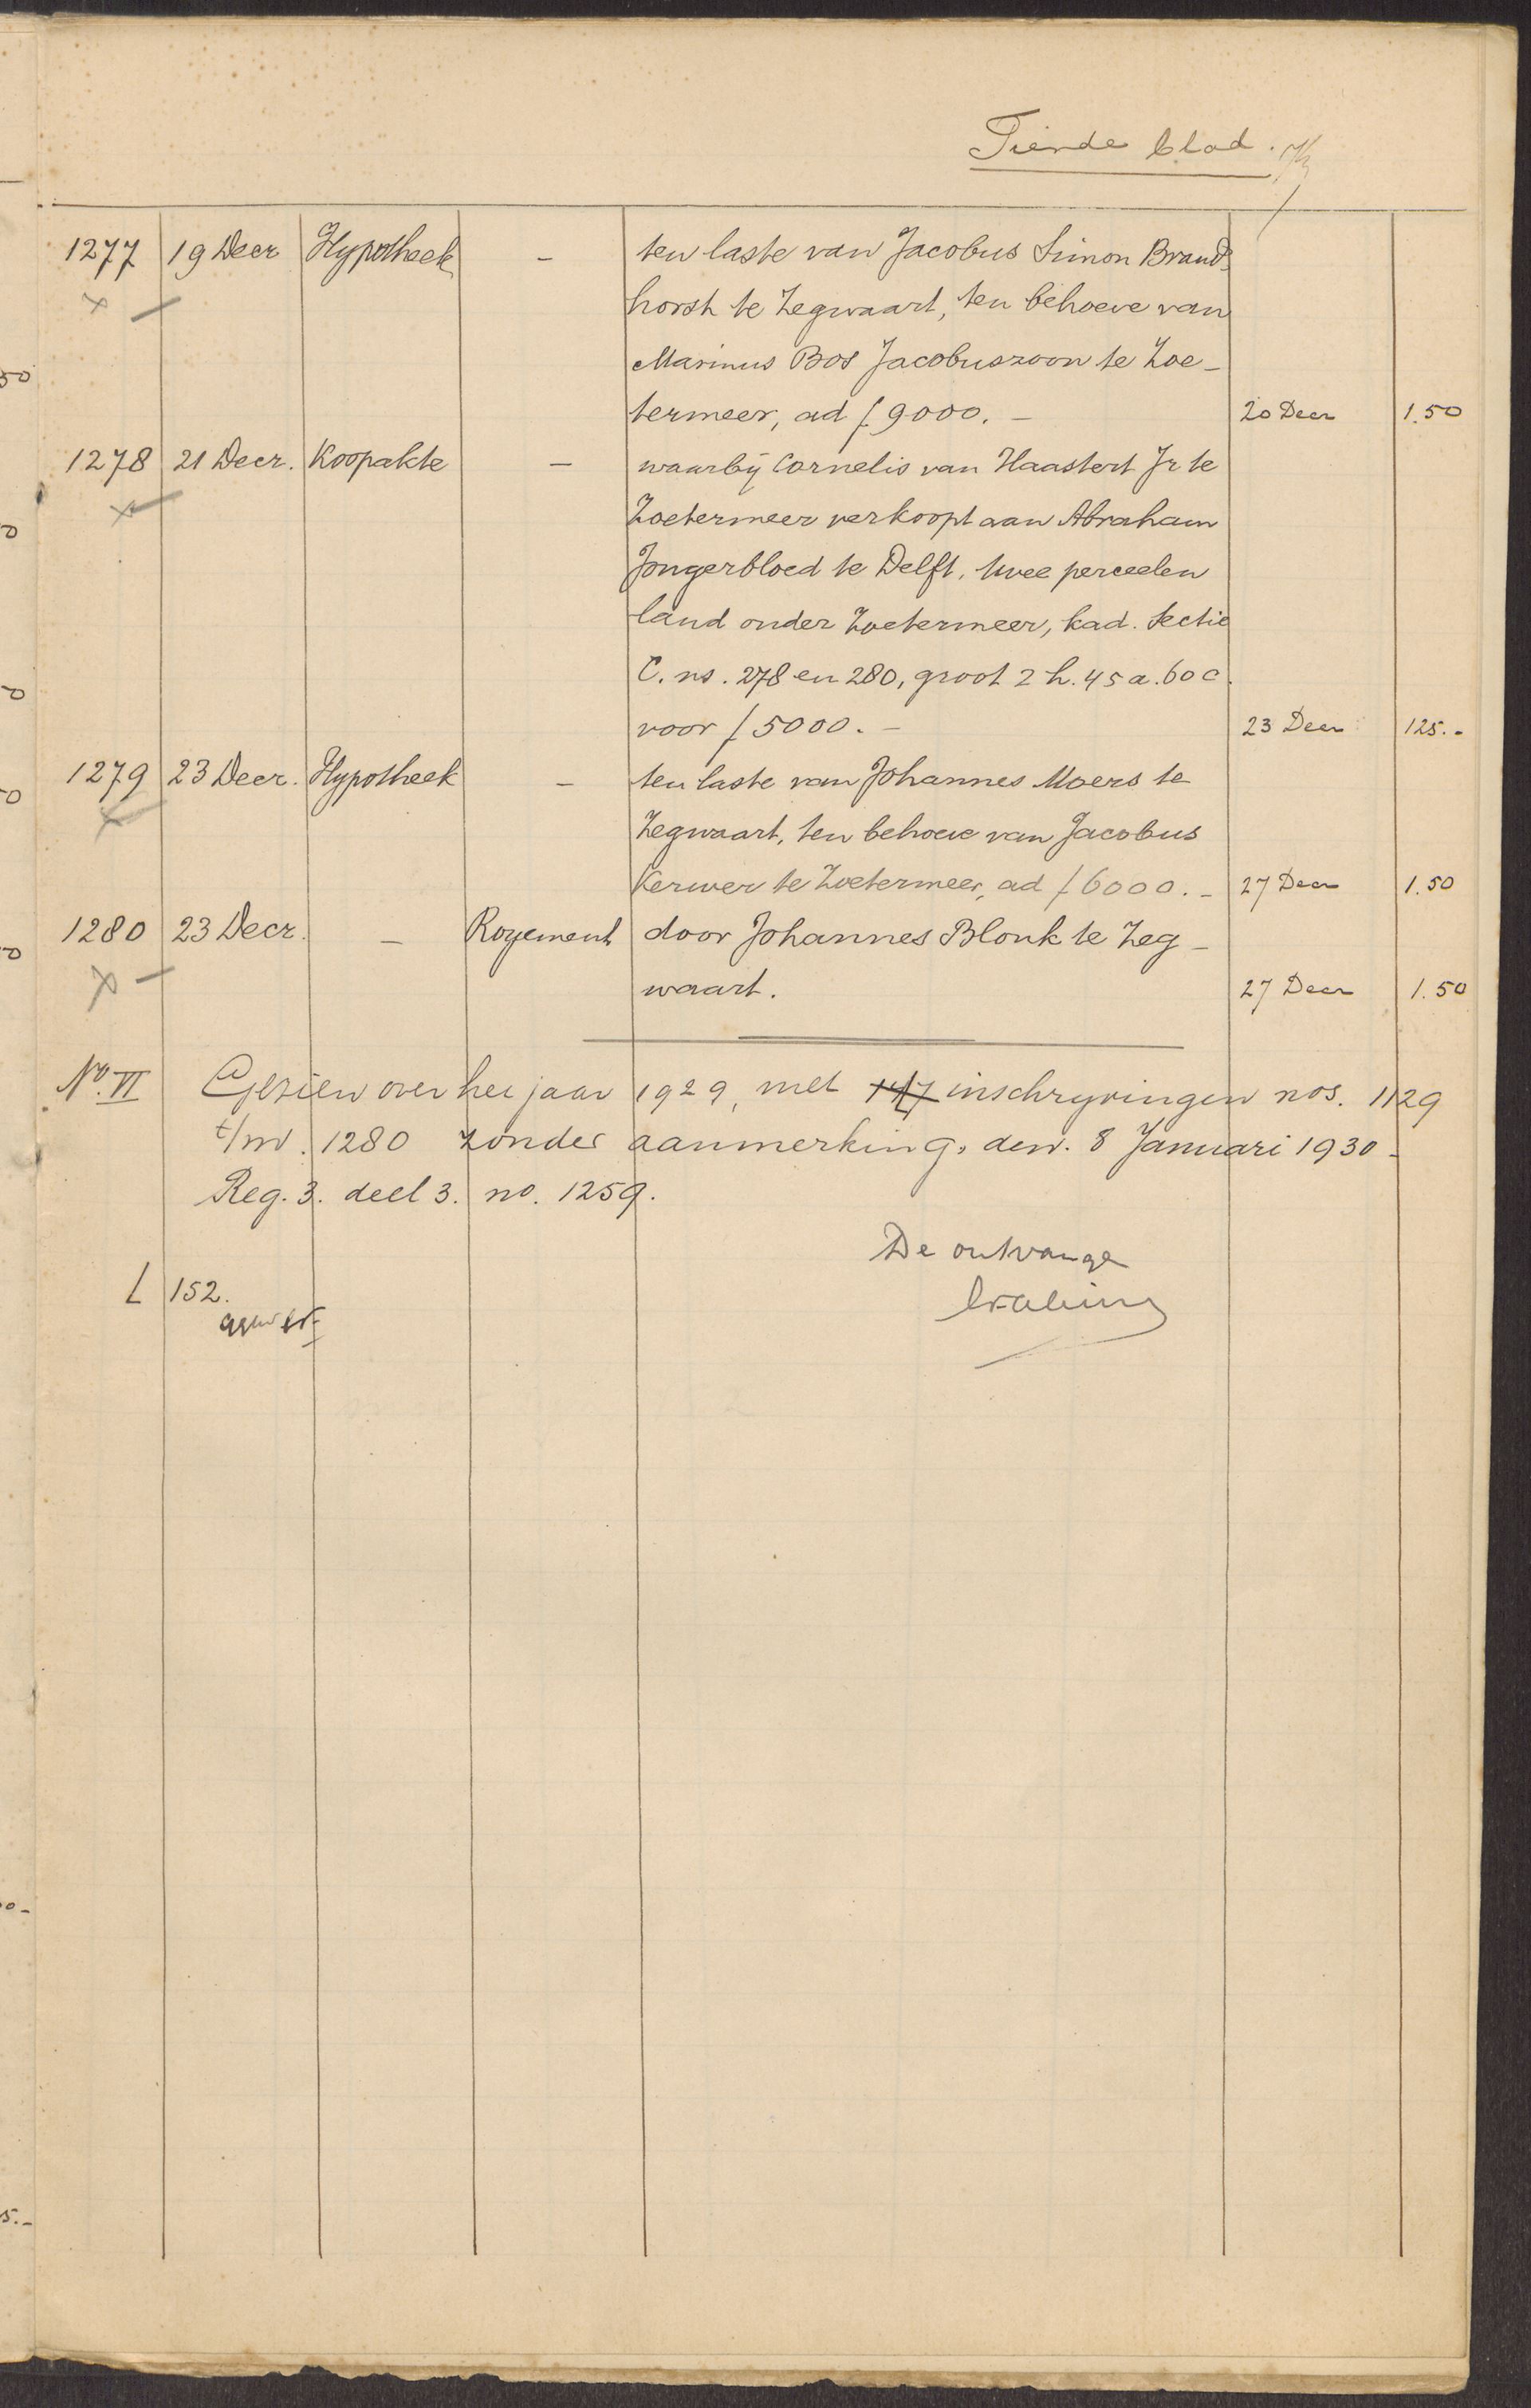 Tiende blad.
1277 19 Decr Hypotheek - ten laste van Jacobus Simon Brand-
horst te Zegwaart, ten behoeve van
Marinus Bos Jacobuszoon te Zoe-
termeer, ad f 9000.- 20 Decr 1.50
1278 21 Decr. Koopakte - waarbij Cornelis van Haastert Jr te
Zoetermeer verkoopt aan Abraham
Jongerbloed te Delft, twee perceelen
land onder Zoetermeer, kad. Sectie
C. ns. 278 en 280, groot 2 h. 45 a. 60 c.
voor f 5000.- 23 Decr 125.-
1279 23 Decr. Hypotheek - ten laste van Johannes Moers te
Zegwaart, ten behoeve van Jacobus
Kerwer te Zoetermeer, ad f 6000.- 27 Decr 1.50
1280 23 Decr. - Royement door Johannes Blonk te Zeg-
waart. 27 Decr 1.50
No. VI Gezien over het jaar 1929, met 147 inschryvingen nos. 1129
t/m. 1280 zonder aanmerking, den. 8 Januari 1930-
Reg. 3. deel 3. no. 1259.
De ontvanger
L 152.